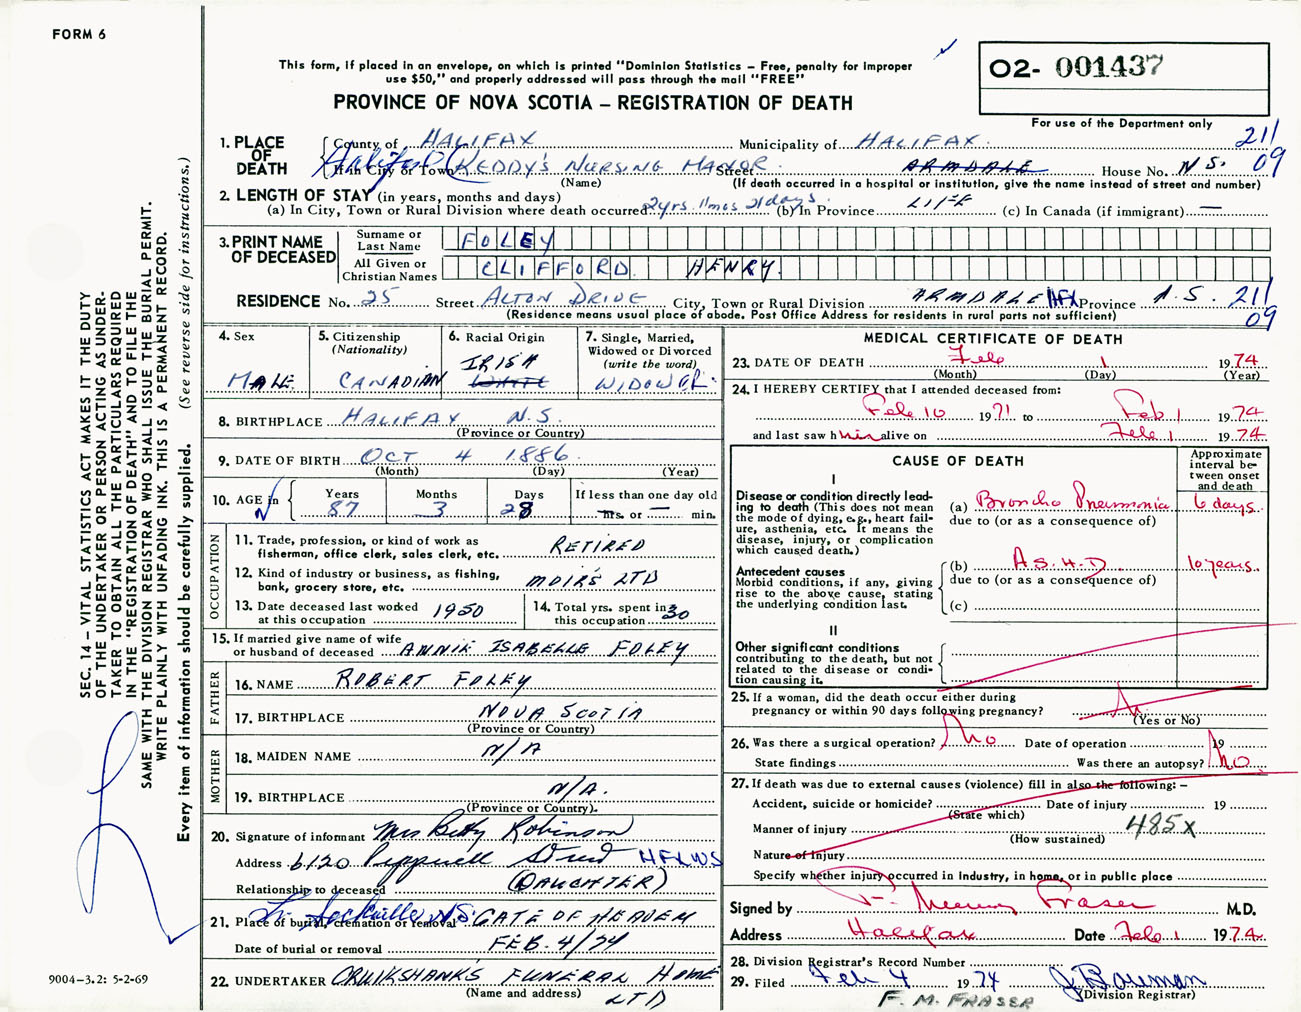 FORM 6
This form, if placed in an envelope, on which is printed "Dominion Statistics – Free, penalty for improper
use $50," and properly addressed will pass through the mail "FREE"
PROVINCE OF NOVA SCOTIA – REGISTRATION OF DEATH
02- 001437
For use of the Department only
211
09
1. PLACE OF DEATH
County of HALIFAX Municipality of HALIFAX
City or Town KEDDY'S NURSING MANOR Street ARMDALE House No. N S.
(Name) (If death occurred in a hospital or institution, give the name instead of street and number)
2. LENGTH OF STAY (in years, months and days)
(a) In City, Town or Rural Division where death occurred 2yrs. 11mos 21days. (b) In Province LIFE (c) In Canada (if immigrant) —
3. PRINT NAME OF DECEASED
Surname or Last Name FOLEY
All Given or Christian Names CLIFFORD HENRY
RESIDENCE No. 25 Street ALTON DRIVE City, Town or Rural Division ARMDALE HFX Province N. S. 211
(Residence means usual place of abode. Post Office Address for residents in rural parts not sufficient) 09
4. Sex
MALE
5. Citizenship
(Nationality)
CANADIAN
6. Racial Origin
IRISH
WHITE
7. Single, Married,
Widowed or Divorced
(write the word)
WIDOWER
8. BIRTHPLACE HALIFAX N.S.
(Province or Country)
9. DATE OF BIRTH OCT 4 1886
(Month) (Day) (Year)
10. AGE in
Years 87
Months 3
Days 28
If less than one day old
hrs. or — min.
OCCUPATION
11. Trade, profession, or kind of work as
fisherman, office clerk, sales clerk, etc. RETIRED
12. Kind of industry or business, as fishing,
bank, grocery store, etc. MOIR'S LTD
13. Date deceased last worked
at this occupation 1950
14. Total yrs. spent in
this occupation 30
15. If married give name of wife
or husband of deceased ANNIE ISABELLE FOLEY
FATHER
16. NAME ROBERT FOLEY
17. BIRTHPLACE NOVA SCOTIA
(Province or Country)
MOTHER
18. MAIDEN NAME N/A
19. BIRTHPLACE N/A.
(Province or Country).
20. Signature of informant Mrs Betty Robinson
Address 6120 Pepperell Street HFX NS
Relationship to deceased (DAUGHTER)
21. Place of burial, cremation or removal Lr. Sackville N.S. GATE OF HEAVEN
Date of burial or removal FEB. 4/74
22. UNDERTAKER CRUIKSHANKS FUNERAL HOME
(Name and address) LTD
MEDICAL CERTIFICATE OF DEATH
23. DATE OF DEATH Feb 1 1974
(Month) (Day) (Year)
24. I HEREBY CERTIFY that I attended deceased from:
Feb 10 1971 to Feb 1 1974
and last saw him alive on Feb 1 1974
CAUSE OF DEATH
Approximate
interval be-
tween onset
and death
I
Disease or condition directly lead-
ing to death (This does not mean
the mode of dying, e.g., heart fail-
ure, asthenia, etc. It means the
disease, injury, or complication
which caused death.)
(a) Broncho Pneumonia 6 days.
due to (or as a consequence of)
Antecedent causes
Morbid conditions, if any, giving
rise to the above cause, stating
the underlying condition last.
(b) A.S.H.D. 10 years.
due to (or as a consequence of)
(c)
II
Other significant conditions
contributing to the death, but not
related to the disease or condi-
tion causing it.
25. If a woman, did the death occur either during
pregnancy or within 90 days following pregnancy?
(Yes or No)
26. Was there a surgical operation? No Date of operation 19
State findings Was there an autopsy? No
27. If death was due to external causes (violence) fill in also the following: –
Accident, suicide or homicide? Date of injury 19
(State which)
Manner of injury 485X
(How sustained)
Nature of Injury
Specify whether injury occurred in Industry, in home, or in public place
Signed by F. Murray Fraser M.D.
Address Halifax Date Feb 1 1974
28. Division Registrar's Record Number
29. Filed Feb 4 1974 J Bowman
(Division Registrar)
F. M. FRASER
SEC. 14 – VITAL STATISTICS ACT MAKES IT THE DUTY
OF THE UNDERTAKER OR PERSON ACTING AS UNDER-
TAKER TO OBTAIN ALL THE PARTICULARS REQUIRED
IN THE "REGISTRATION OF DEATH" AND TO FILE THE
SAME WITH THE DIVISION REGISTRAR WHO SHALL ISSUE THE BURIAL PERMIT.
WRITE PLAINLY WITH UNFADING INK. THIS IS A PERMANENT RECORD.
Every item of information should be carefully supplied. (See reverse side for instructions.)
9004–3.2: 5-2-69